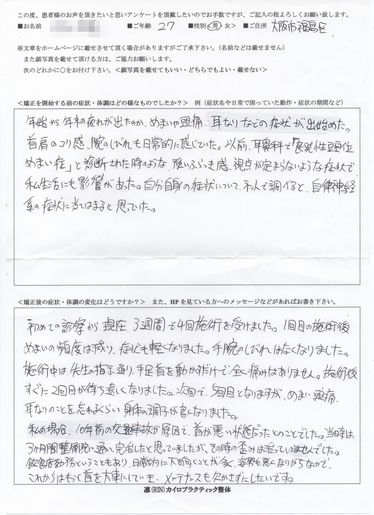 この度、患者様のお声を頂きたいと思いアンケートを頂戴したいのでお手数ですが、ご記入の程よろしくお願い致します。
■お名前 ■ご年齢 27 ■性別<男 女> ■ご住所 大阪市福島区
※文章をホームページに載せさせて頂く場合がありますがご了承下さい。(名前などは載せません)
また顔写真を載せて頂ける方は、ご協力お願いします。
次のどれかに○をお付け下さい。<顔写真を載せてもいい・どちらでもよい・載せない>
<矯正を開始する前の症状・体調はどの様なものでしたか？> 例（症状名や日常で困っていた動作・症状の期間など）
年始から年初疲れが出たのか、めまいや頭痛、耳なりなどの症状が出始めた。
首肩のコリ感、腕のしびれも日常的に感じていた。以前、耳鼻科で「良性発作性頭位
めまい症」と診断された時のような、強いふらふら感、視点が定まらないような症状で
私生活にも影響があった。自分自身の症状について、本人で調べると、自律神経
系の症状に当てはまると思っていた。
<矯正後の症状・体調の変化はどうですか？> また、HPを見ている方へのメッセージなどがあればお書き下さい。
初めての診察から現在3週間で4回施術を受けました。1回目の施術後
めまいの頻度は減り、症状も軽くなりました。手腕のしびれはなくなりました。
施術中は先生の指示通り、手足首を動かすだけで、全く痛みはありません。施術後
すぐに2回目が待ち遠しくなりました。次回で、5回目となりますが、めまい、頭痛、
耳なりのことを忘れるくらい身体の調子が良くなりました。
私の場合、10年前の交通事故が原因で、首が悪い状態だったとのことでした。当時は
3ヶ月間整骨院に通い完治したと思っていましたが、その時の歪みは治っていませんでした。
飲食店勤務ということもあり、日常的に下を向くことが多く、姿勢も悪くなりがちなので、
これからはもっと首を大事にしていき、メンテナンスも欠かせずにしたいです。
凛(RIN)カイロプラクティック整体